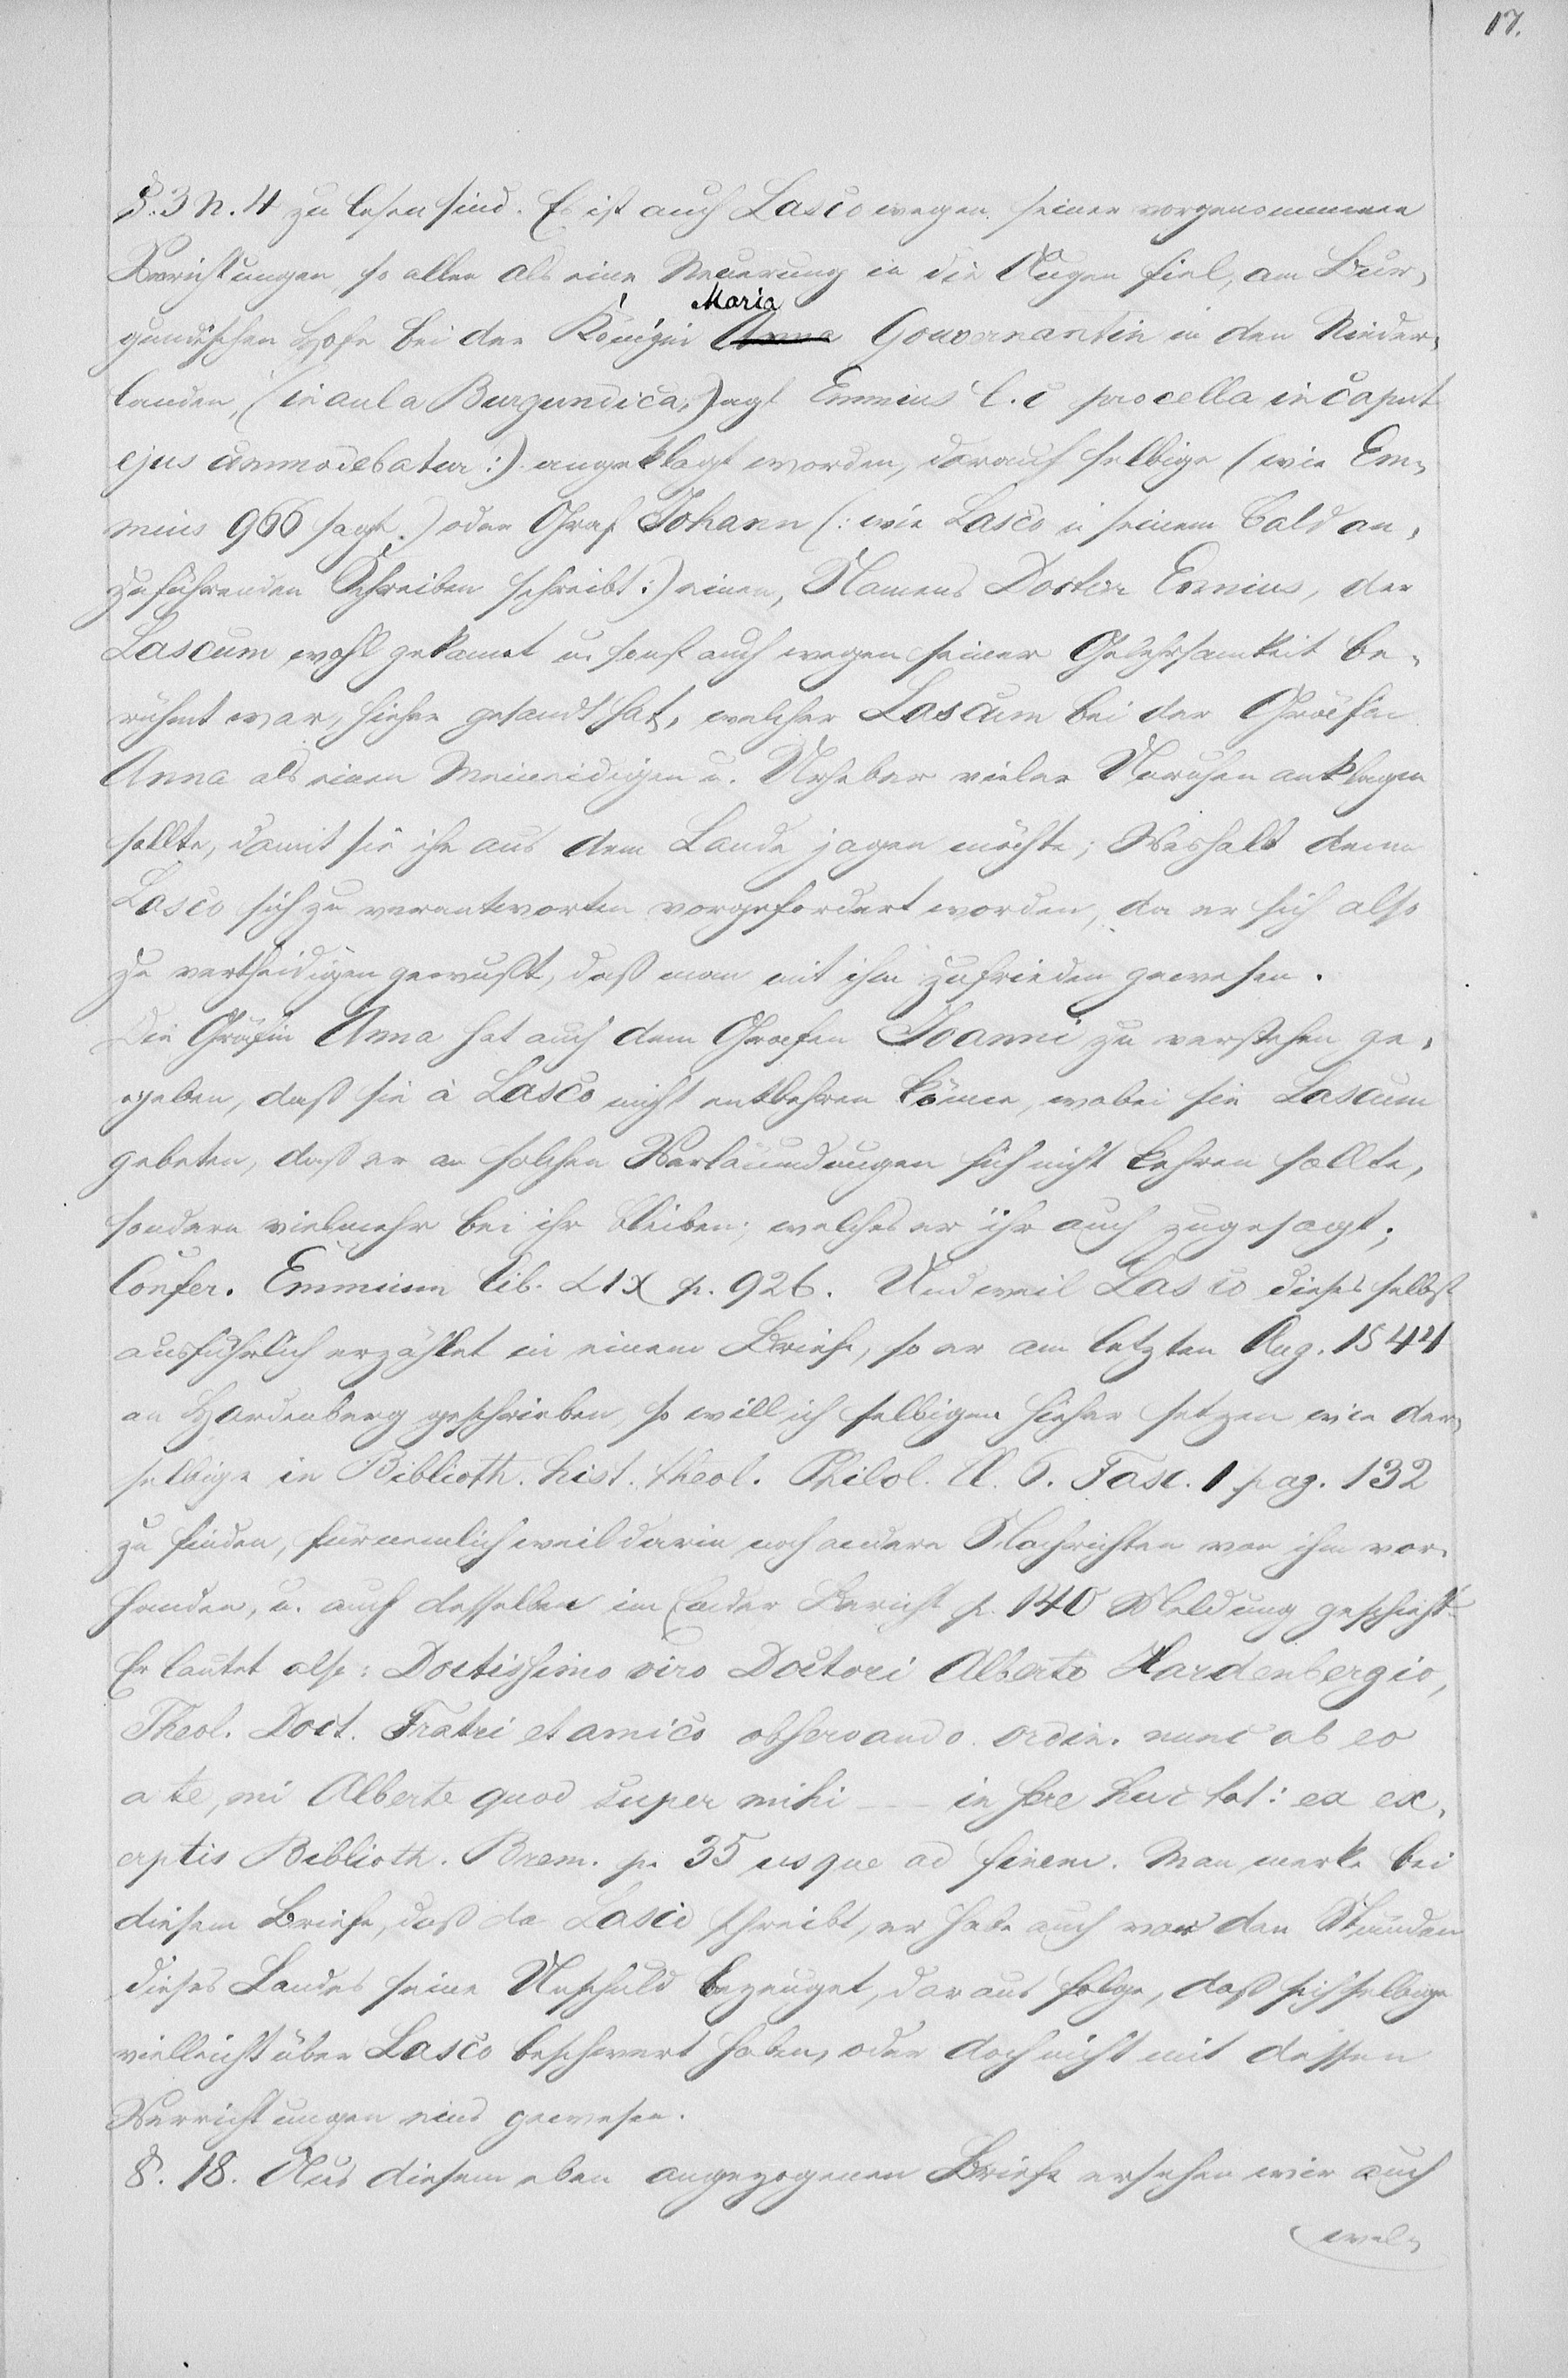 17.
§. 3 N. 4 zu lesen sind. Es ist auch Lasco wegen seiner vorgenommenen
Verrichtungen, so allen als eine Neuerung in die Augen fiel, am Bur-
gundischen Hofe bei der Königin Maria Gouvernantin in den Nieder-
landen, (in aula Burgundica, sagt Emmius l. c procella in caput
ejus commodebatur :) angeklagt worden, darauf selbige (wie Em-
mius 966 sagt.) oder Graf Johann (: wie Lasco in seinem bald an-
zuführenden Schreiben schreibt :) einen, Namens Doctor Ennius, der
Lascum wohl gekannt u. sonst auch wegen seiner Gelehrsamkeit be-
rühmt war, hieher gesandt hat, welcher Lascum bei der Gräfin
Anna als einen Meineidigen u. Urheber vieler Unruhen anklagen
sollte, damit sie ihn aus dem Lande jagen möchte; Weshalb denn
Lasco sich zu verantworten vorgefordert worden, da er sich also
zu vertheidigen gewußt, daß man mit ihm zufrieden gewesen.
Die Gräfin Anna hat auch dem Grafen Joanni zu verstehen ge-
geben, daß sie à Lasco nicht entbehren könne, wobei sie Lascum
gebeten, daß er an solchen Verläumdungen sich nicht kehren sollte,
sondern vielmehr bei ihr bleiben; welches er ihr auch zugesagt;
Confer. Emmium lib. LIX p. 926. Und weil Lasco dieses selbst
ausführlich erzählet in einem Briefe, so er am letzten Aug. 1544
an Hardenberg geschrieben, so will ich selbigen hieher setzen wie der-
selbige in Biblioth. hist. theol. Philol. Cl. 6. Fasc. 1 pag. 132
zu finden, fürnemlich weil darin noch andere Nachrichten von ihm vor-
handen, u. auch desselben im Emder Bericht p. 140 Meldung geschieht
Er lautet also: Doctissimo viro Doctori Alberto Hardenbergio,
Theol. Doct. Fratri et amico observando. ordin. nunc ab eo
a te, mi Alberte quod super mihi --- in fere huc tot: ex ex-
ceptis Biblioth. Brem. p. 35 usque ad finem. Man merke bei
diesem Briefe, daß da Lasco schreibt, er habe auch vor den Ständen
dieses Landes seine Unschuld bezeuget, daraus folge, daß sich selbige
vielleicht über Lasco beschwert haben, oder doch nicht mit dessen
Verrichtungen eins gewesen.
§. 18. Aus diesem eben angezogenen Briefe ersehen wir auch
wel-